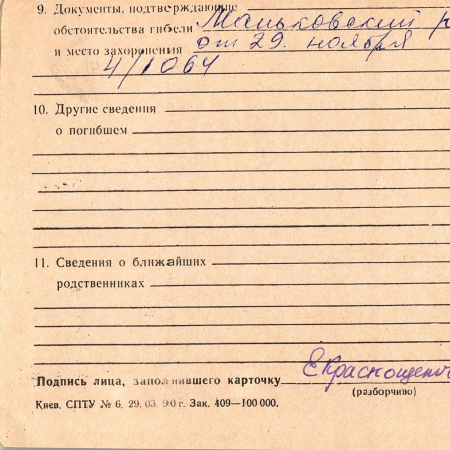 9. Документы, подтверждающие
обстоятельства гибели Маньковский р
и место захоронения от 29. ноября
4/1064
10. Другие сведения
о погибшем
11. Сведения о ближайших
родственниках
Подпись лица, заполнившего карточку
(разборчиво)
Киев. СПТУ № 6. 29. 03. 90 г. Зак. 409—100 000.